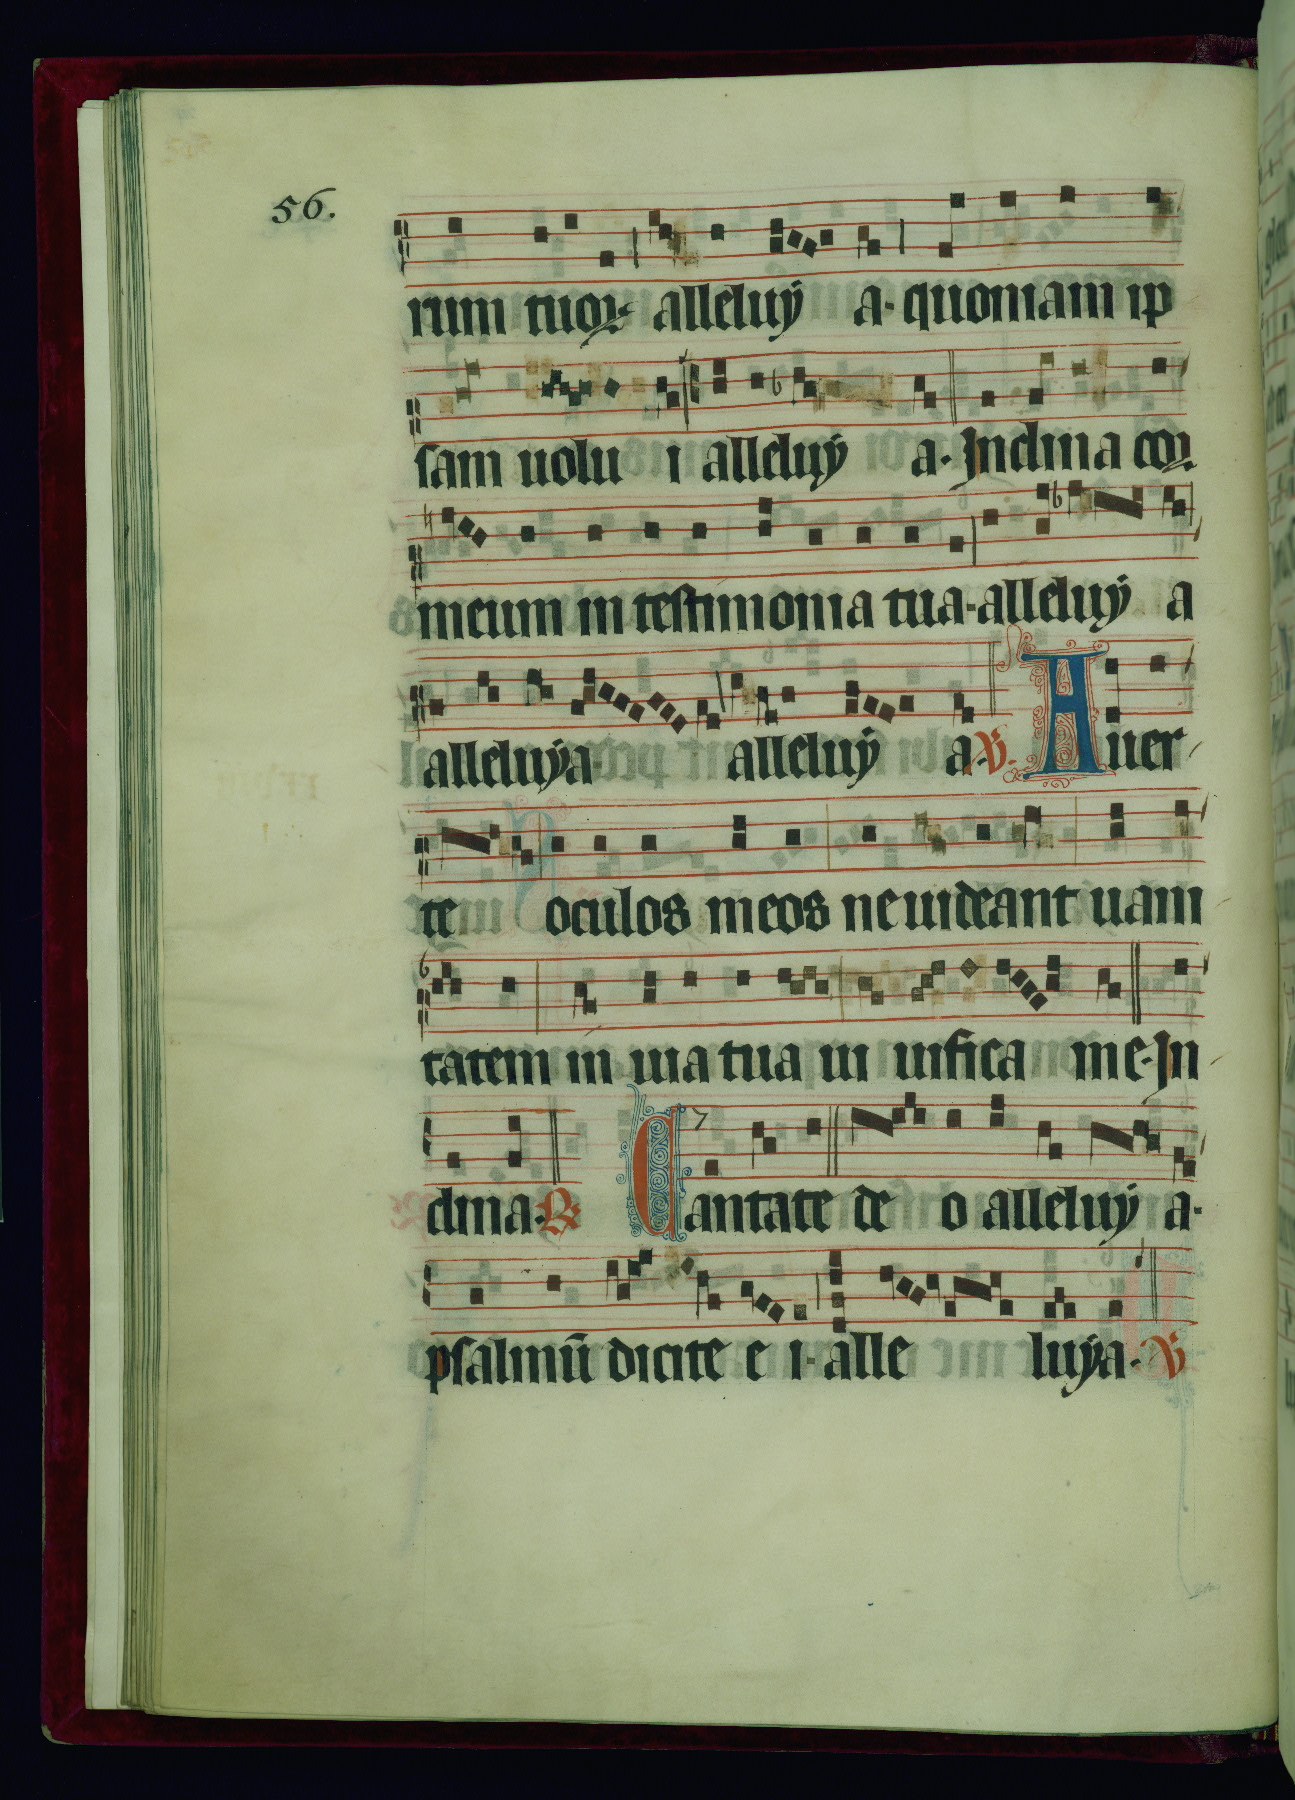 56.
rum tuoꝝ alleluÿ a. quoniam ip
sam uolu i alleluÿ a. Inclina cor
meum in testimonia tua. alleluÿ a
alleluÿa alleluÿ a. ℣. Auer
te oculos meos ne uideant uani
tatem in uia tua ui uifica me. In
clina. ℟ Cantate de o alleluÿ a.
psalmū dicite e i. alle luÿa. ℣